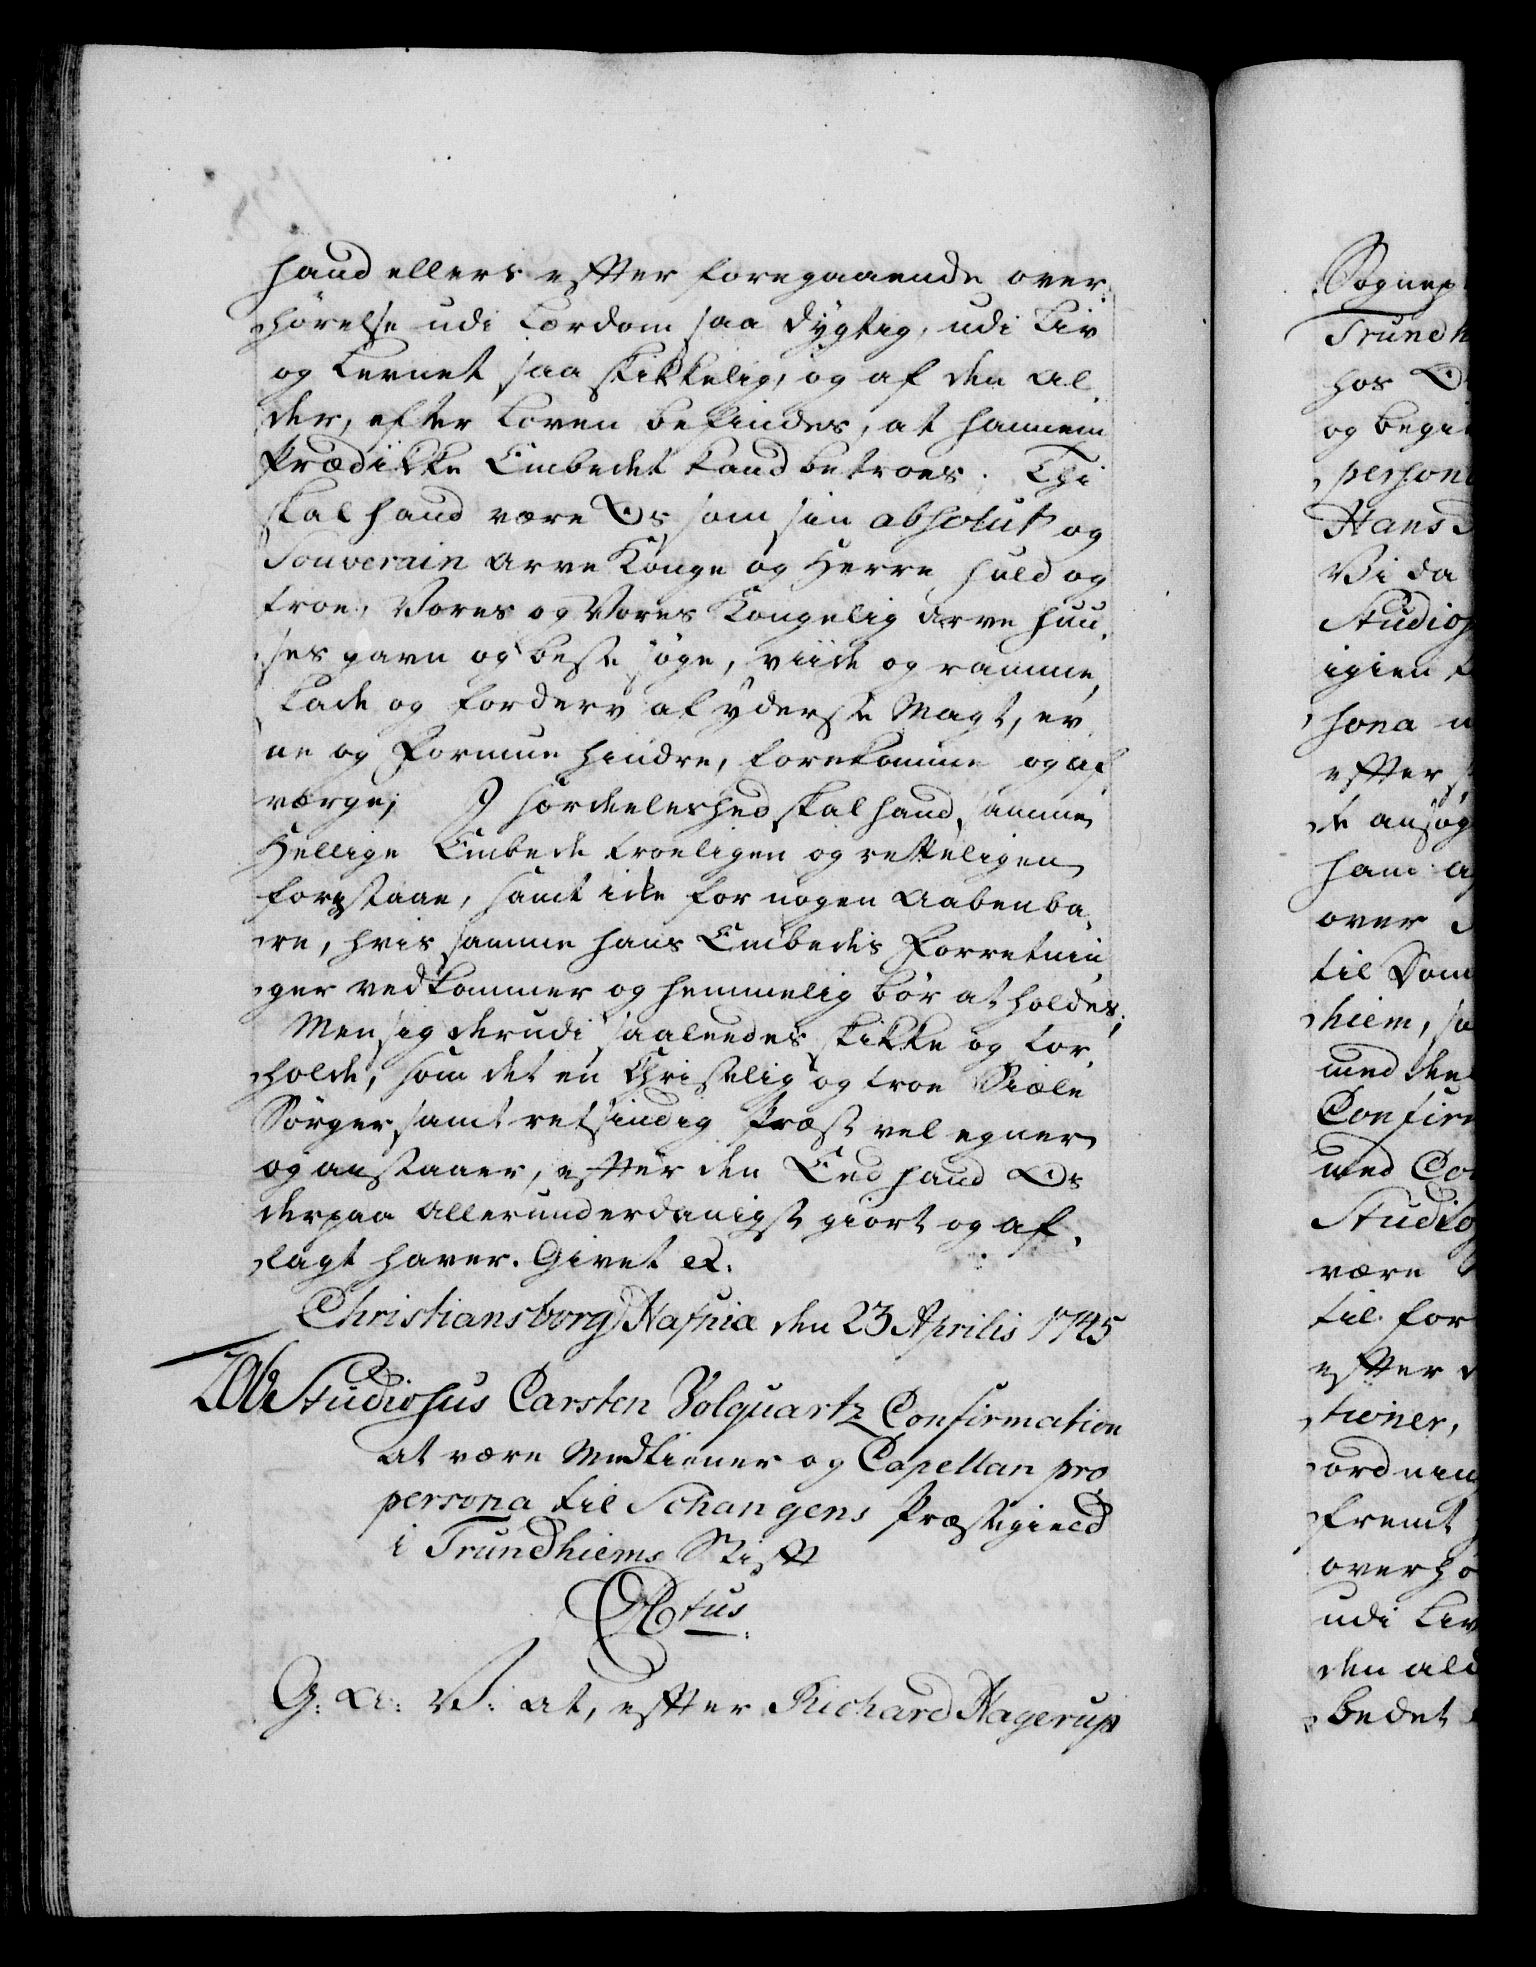 hand ellers effter foregaaende over-
hörelse udi Lærdom saa dygtig, udi Liv
og Levnet saa skikkelig, og af den Al-
der, efter Loven befindes, at hannem
Prædikke Embedet kand betroes. Thi
skal hand være Os som sin absolut og
Souverain Arve Konge og Herre huld og
troe, Vores og Vores Kongelig Arve Huu-
ses gavn og beste söge, viide og ramme,
skade og forderv af yderste Magt, ev-
ne og Formue hindre, forekomme og af-
værge; I særdeleshed skal hand samme
Hellige Embede troeligen og retteligen
forestaae, samt icke for nogen Aabenba-
re, hvis samme hans Embedis Forretnin-
ger vedkommer og hemmelig bör at holdes;
Men sig derudi saaledes skikke og for-
holde, som det en Christelig og troe Siæle
Sörger samt retsindig Præst vel egner
og anstaaer, effter den Eed hand Os
derpaa allerunderdanigst giort og af-
lagt haver. Givet &c.
Christiansborg Hafniæ den 23 Aprilis 1745
Studiosus Carsten Volquartz Confirmation
at være Medtiener og Capellan pro
persona til Schangens Præstegield
i Trundhiems Stifft
G: A: V: at, effter Richard Hagerup
Sognep
Trundh
hos
og begie
person
Hans
Vi da
Studios
igien
sona
effter
de ansøg
ham
over
til Dom
hiem,
med
Confirm
med
Studios
være
til for
effter
tioner,
ordnin
fremt
overhø
udi Liv
den ald
bedet